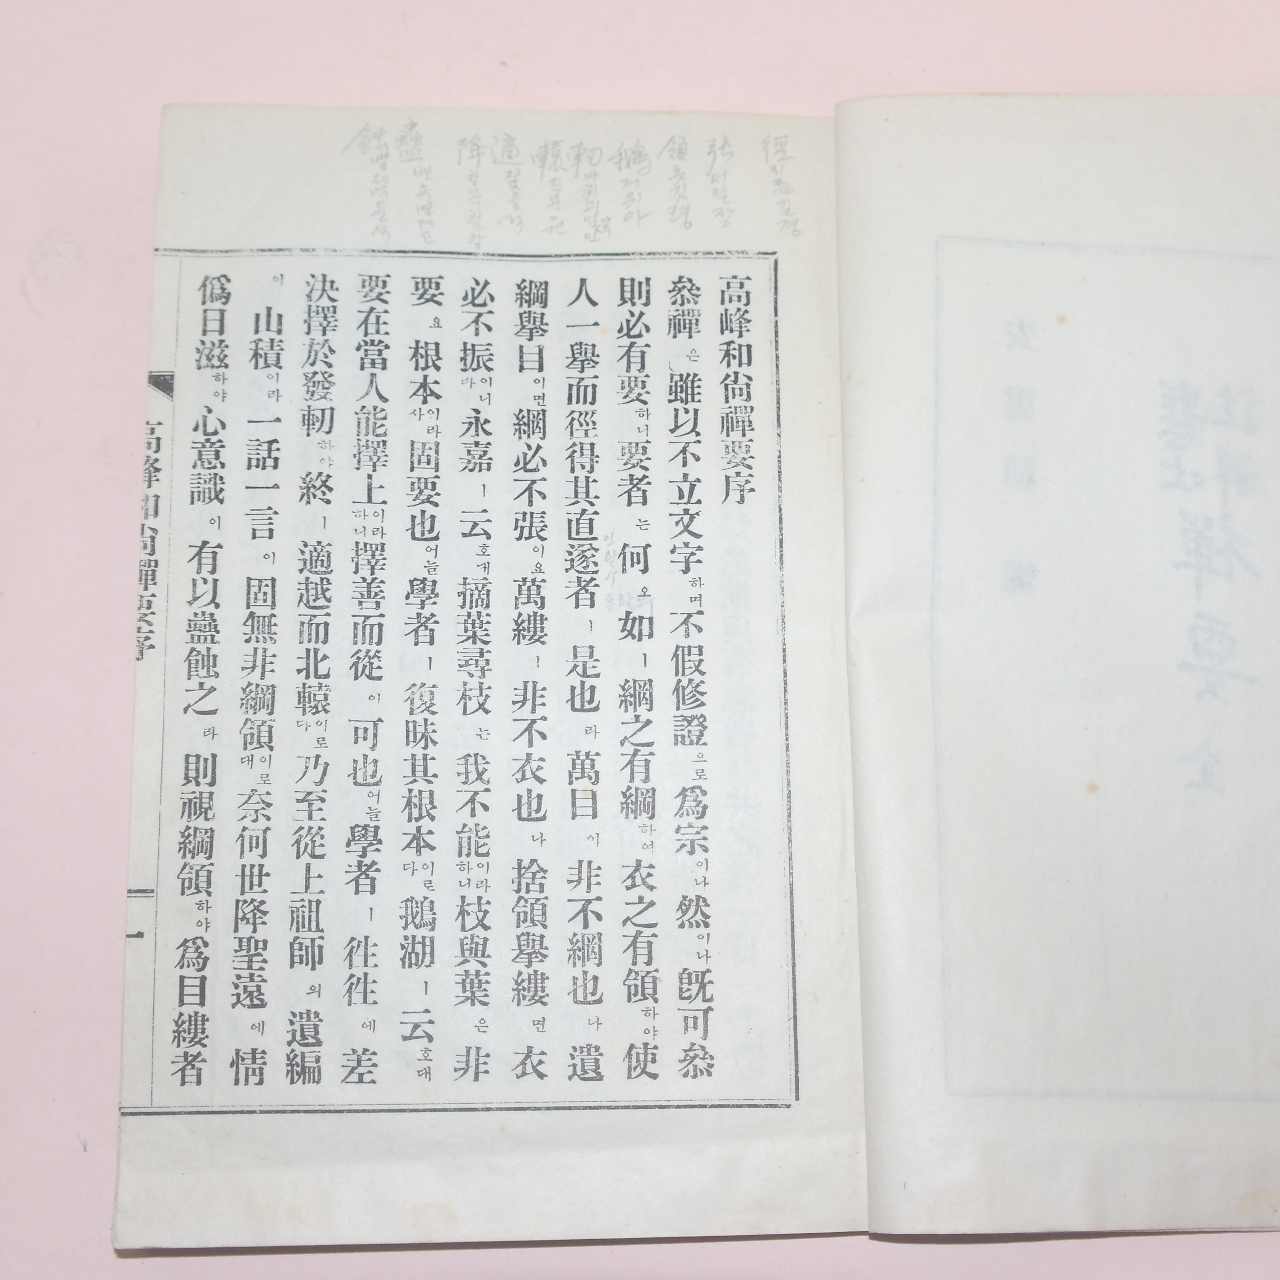 高峰和尙禪要序
叅禪은雖以不立文字하며不假修證으로爲宗이나然이나旣可叅
則必有要하니要者는何오如ㅣ綱之有綱하여衣之有領하야使
人一擧而徑得其直遂者ㅣ是也라萬目이非不綱也나遺
綱擧目이면綱必不張이요萬縷ㅣ非不衣也나捨領擧縷면衣
必不振이니다永嘉ㅣ云호대摘葉尋枝는我不能이라하니枝與葉은非
要요根本이라사固要也어늘學者ㅣ復昧其根本이로다鵝湖ㅣ云호대
要在當人能擇上이라하니擇善而從이可也어늘學者ㅣ徃徃에差
決擇於發軔하야終ㅣ適越而北轅이로다乃至從上祖師의遺編
이山積이라一話一言이固無非綱領이로대奈何世降聖遠에情
僞日滋하야心意識이有以蠱蝕之라則視綱領하야爲目縷者
高峰和尙禪要序
一
徑
張 베풀장
領 옷깃령
鵝 거위아
軔
轅
適
降
蠱
蝕
禪要
全